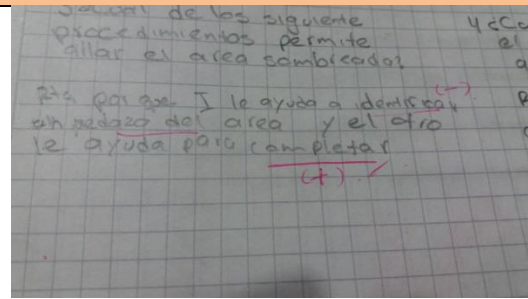 de los siguiente
procedimientos permite
allar el area sombreada?
Rta porque I le ayuda a identificar
(-)
un pedazo del area y el otro
le ayuda para completar
(+)
el
a